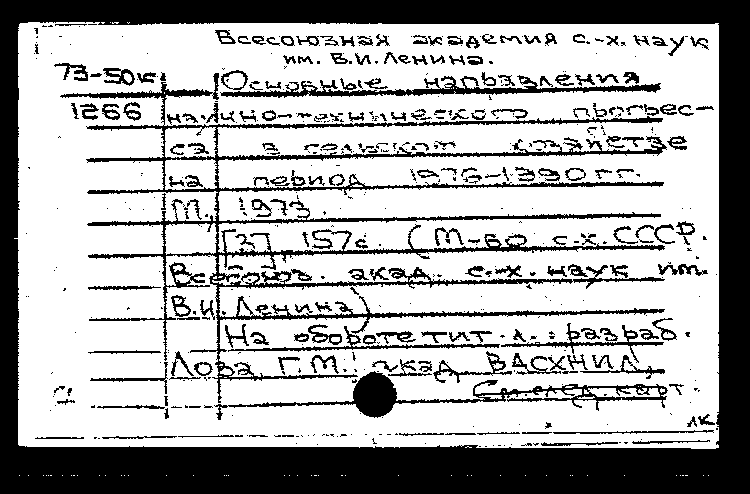 Всесоюзная академия с.-х. наук
им. В.И. Ленина.
73-50к Основные направления
1266 научно-технического прогрес-
са в сельском хозяйстве
на период 1976-1990 гг.
М., 1973.
[3], 157с. (М-во с.х. СССР.
Всесоюз. акад. с.-х. наук им.
В.И. Ленина)
На обороте тит. л.: разраб.
Лоза Г.М. акад ВАСХНИЛ,
См. след. карт.
лк